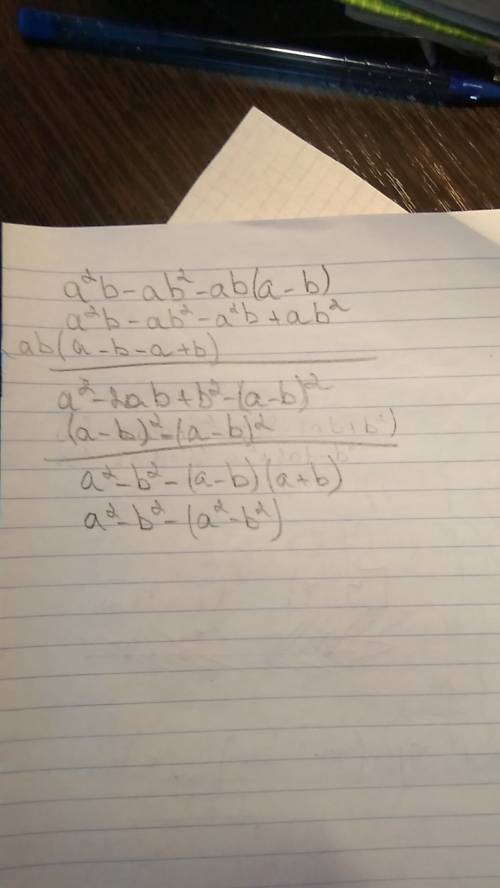 a²b-ab²-ab(a-b)
a²b-ab²-a²b+ab²
ab(a-b-a+b)
a²-2ab+b²-(a-b)²
(a-b)²-(a-b)²
a²-b²-(a-b)(a+b)
a²-b²-(a²-b²)